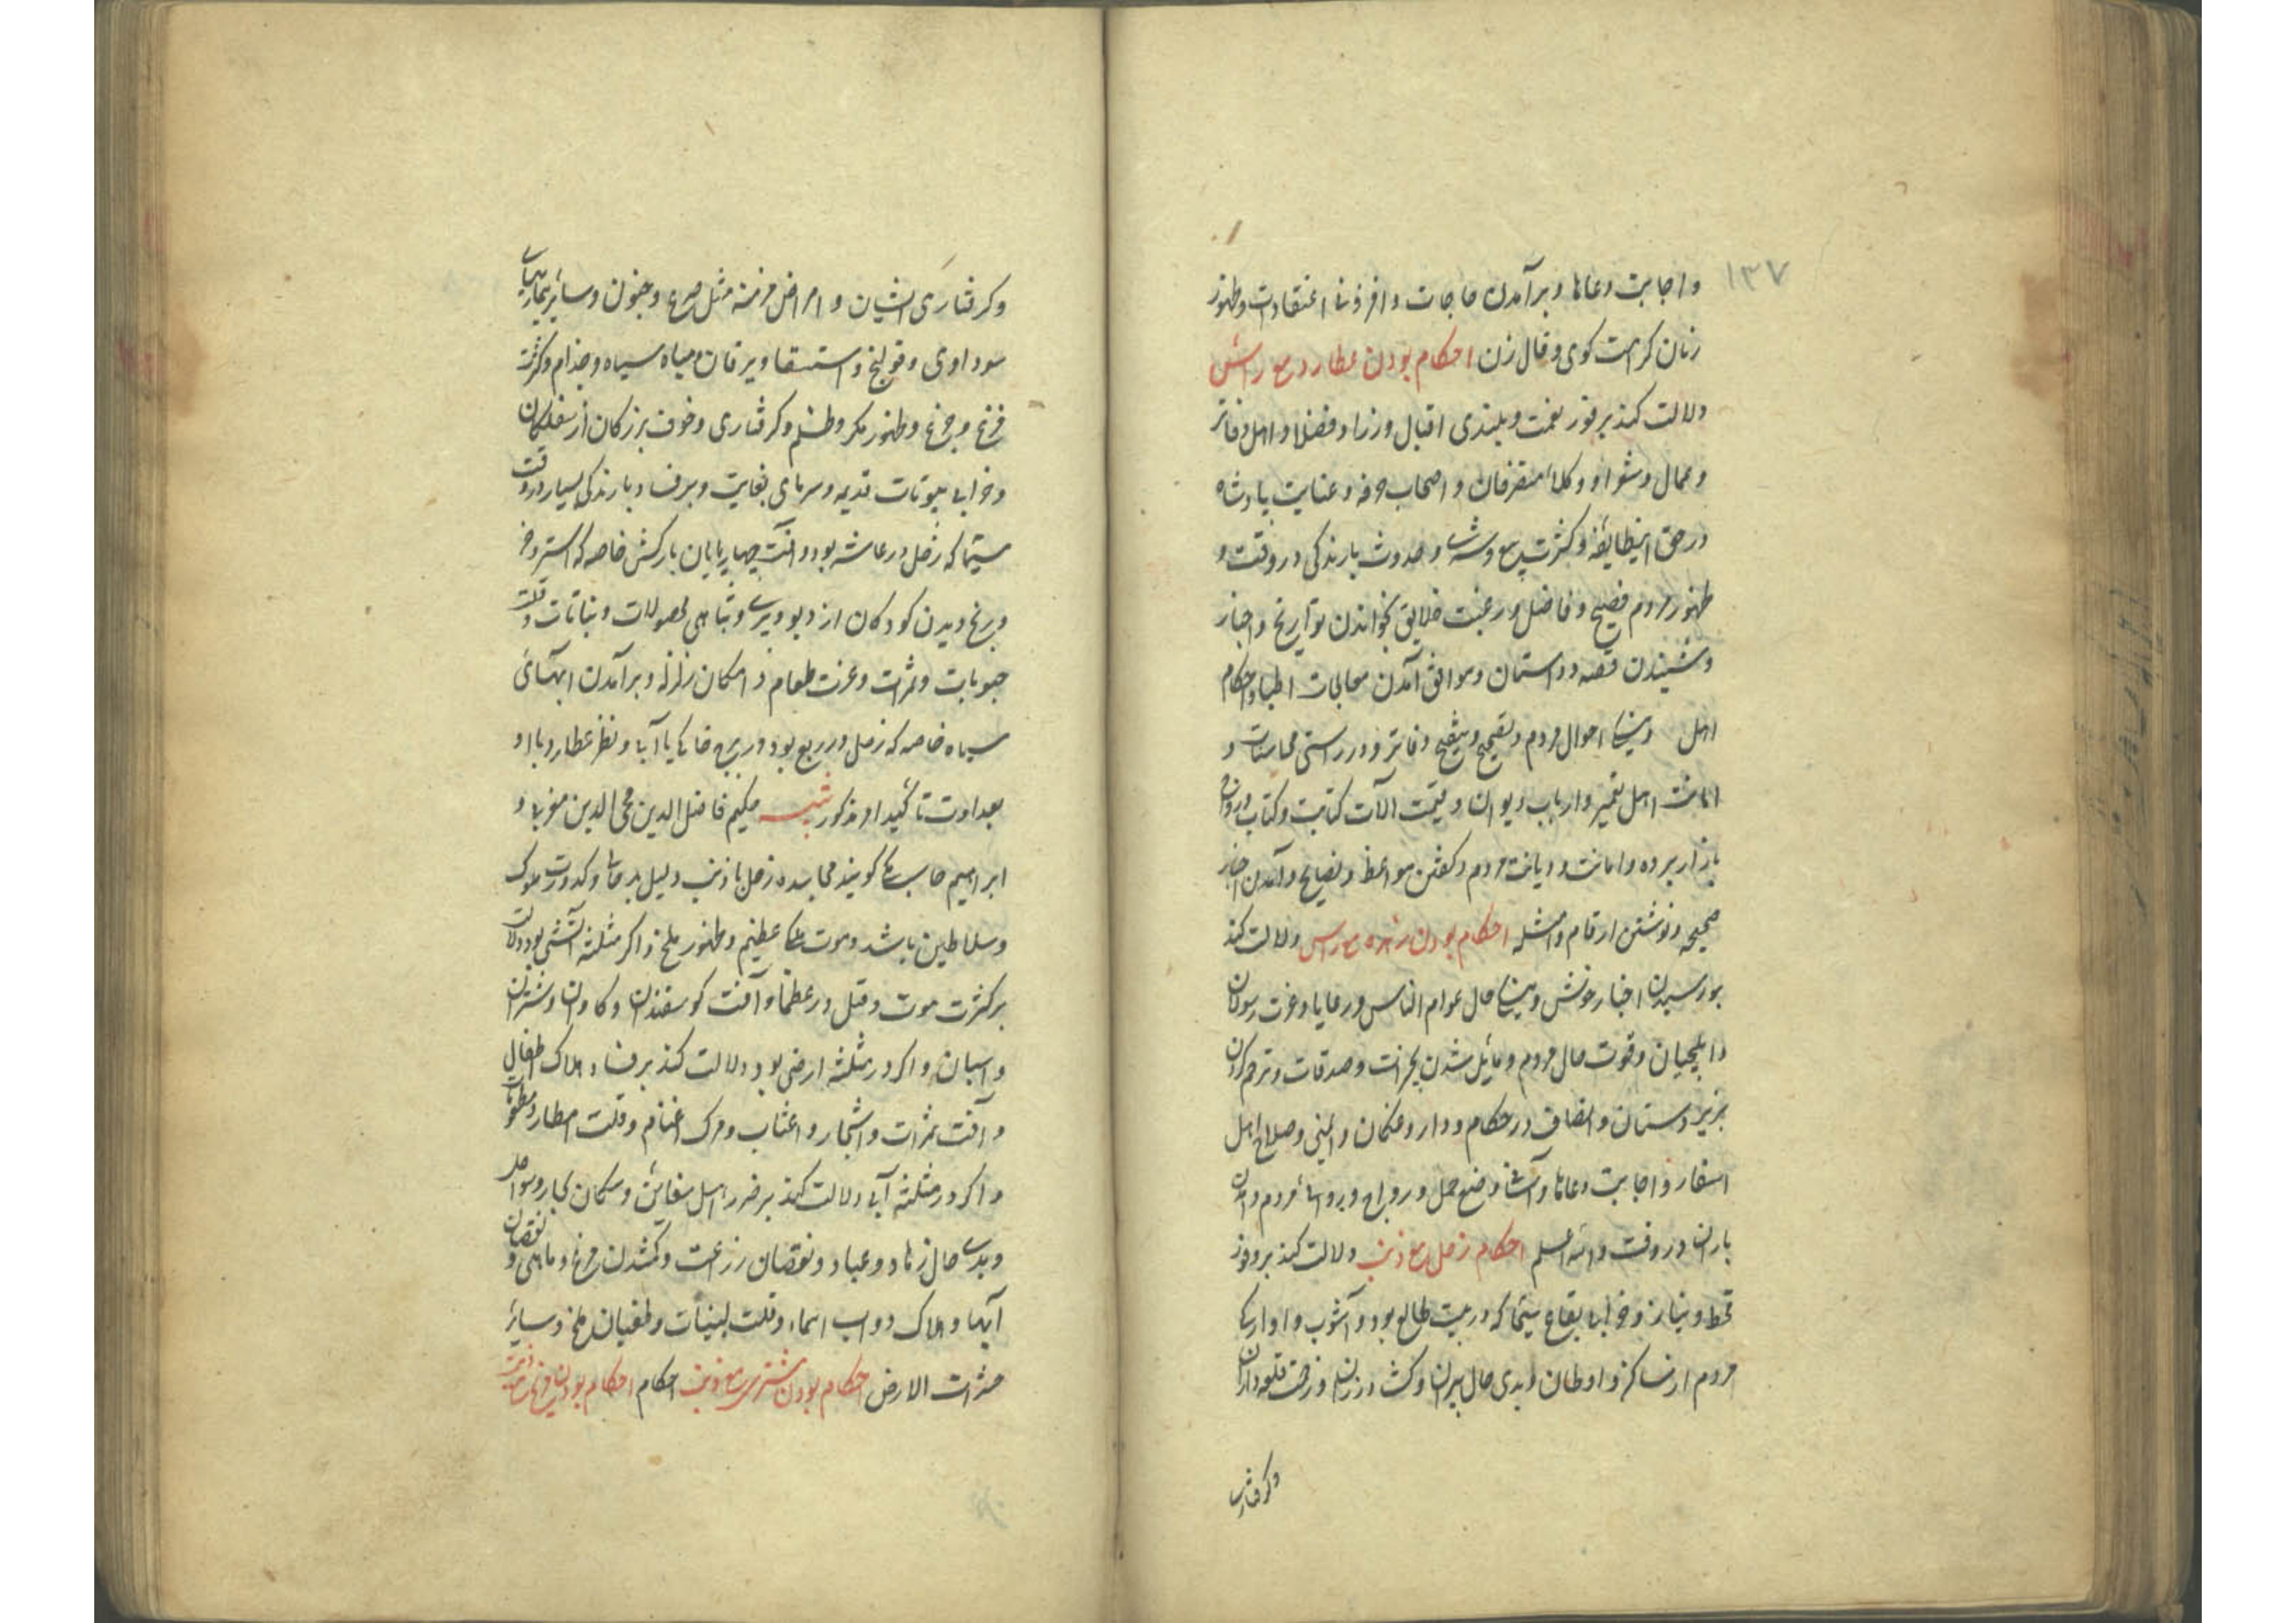 ۱۳۷
و اجابت دعاها و برآمدن حاجات و افزونی اعتقادات و ظهور
زنان کرامت کوی و فال زن احکام بودن عطارد مع راس
دلالت کند بر فور نعمت و بلندی اقبال وزرا و فضلا و اهل دفاتر
و عمال و شعرا و وکلا متصرفان و اصحاب حرفه و عنایت پادشاه
در حق اینطایفه و کثرت بیع و شرا و حدوث بارندکی در وقت و
ظهور مردم فصیح و فاضل و رغبت خلایق بخواندن تواریخ و اخبار
و شنیدن قصه و داستان و موافق آمدن معالجات اطبا و احکام
اهل و نیکی احوال مردم و تصحیح و تنقیح دفاتر و در راستی محاسبات و
امانت اهل قلم و ارباب دیوان و قیمت آلات کتابت و کتاب و رواج
بازار برده و امانت و دیانت مردم و کفتن مواعظ و نصایح و آمدن اخبار
صحیحه و نوشتن ارقام و امثله احکام بودن زهره مع راس دلالت کند
بورسیدن اخبار خوش و نیکی حال عوام الناس و رعایا و عزت رسولان
و ایلچیان و قوت حال مردم و مایل شدن بخیرات و صدقات و ترحم کردن
بزیردستان و انصاف در حکام و داروغکان و ایمنی و صلاح اهل
اسفار و اجابت دعاها و آسانی وضع حمل و رواج مردم و آمدن
باران در وقت والله اعلم احکام زحل مع ذنب دلالت کند بر وفور
قحط و نیاز و خرابی بقاع سیما که در بیت طالع بود و آشوب و آوارکی
مردم از مساکن و اوطان و بدی حال پیران و کشاورزان و زحمت قلعه داران
و کرفتاری
و کرفتاری ایشان و امراض مزمنه مثل صرع و جنون و سایر بیماریهای
سوداوی و قولنج و استسقا و یرقان سیاه و جذام و کثرت
فزع و جزع و ظهور مکر و ظلم و کرفتاری و خوف بزرکان از سفلکان
و خرابی بیوتات قدیمه و سرمای بغایت و برف و بارندکی بسیار در وقت
سیما که زحل در عاشر بود و آفت چهارپایان بارکش خاصه که استر و خر
و رنج دیدن کودکان از دیو و پری و تباهی محصولات و نباتات و قلت
حبوبات و ثمرات و عزت طعام و امکان زلزله و برآمدن ابرهای
سیاه خاصه که زحل در رابع بود در برج خاکی یا آبی و نظر عطارد با او
بعداوت تاکید او مذکور تنبیه حکیم فاضل الدین محی الدین مغربی و
ابراهیم حاسب کویند محاسده زحل با ذنب دلیل بر کدورت ملوک
و سلاطین باشد و موت عظیم و ظهور ملخ و اکر مثلثه آتشی بود دلالت
بر کثرت موت و قتل در عظما و آفت کوسفندان و کاوان و شتران
و اسبان و اکر در مثلثه ارضی بود دلالت کند بر فساد و هلاک اطفال
و آفت ثمرات و اشجار و اعناب و مرک اغنام و قلت امطار
و اکر در مثلثه آبی دلالت کند بر ضرر اهل سفاین و سکان بحار و سواحل
و بدی حال زهاد و عباد و نقصان زراعت و کم شدن مرغ و ماهی و نقصان
آبها و هلاک دواب الماء و قلت لبنیات و طغیان ملخ و سایر
حشرات الارض احکام بودن مشتری مع ذنب احکام احکام بودن مریخ مع ذنب